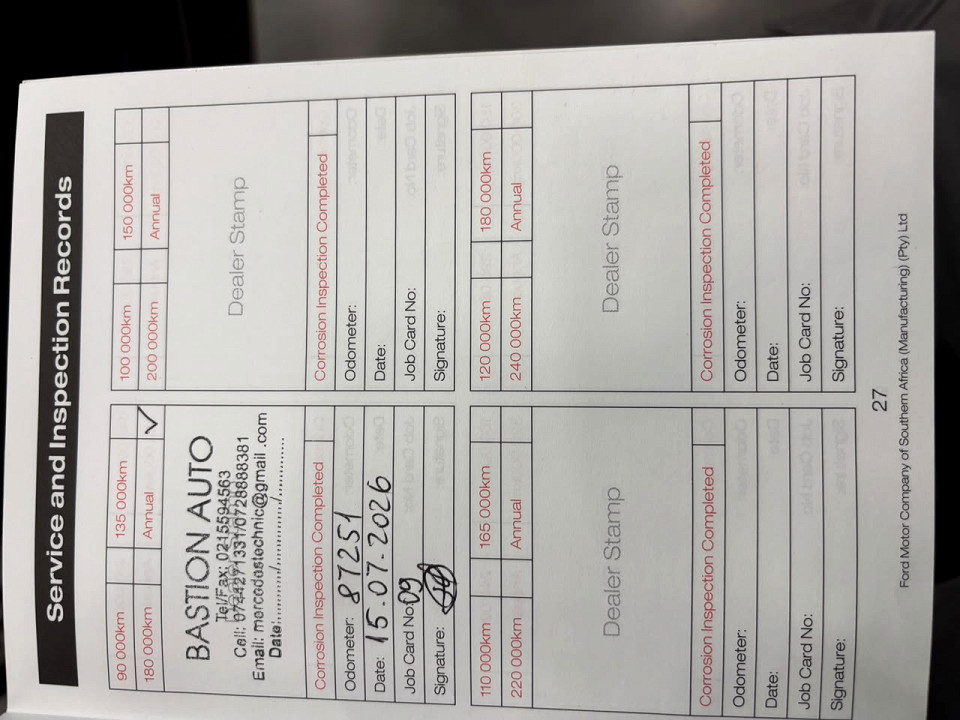 Service and Inspection Records
90 000km 135 000km
180 000km Annual ✓
BASTION AUTO
Tel/Fax: 0215594563
Cell: 0744271331/0728888381
Email: mercedestechnic@gmail.com
Date:............/............/............
Corrosion Inspection Completed
Odometer: 87251
Date: 15.07.2026
Job Card No: 09
Signature:
100 000km 150 000km
200 000km Annual
Dealer Stamp
Corrosion Inspection Completed
Odometer:
Date:
Job Card No:
Signature:
110 000km 165 000km
220 000km Annual
Dealer Stamp
Corrosion Inspection Completed
Odometer:
Date:
Job Card No:
Signature:
120 000km 180 000km
240 000km Annual
Dealer Stamp
Corrosion Inspection Completed
Odometer:
Date:
Job Card No:
Signature:
27
Ford Motor Company of Southern Africa (Manufacturing) (Pty) Ltd